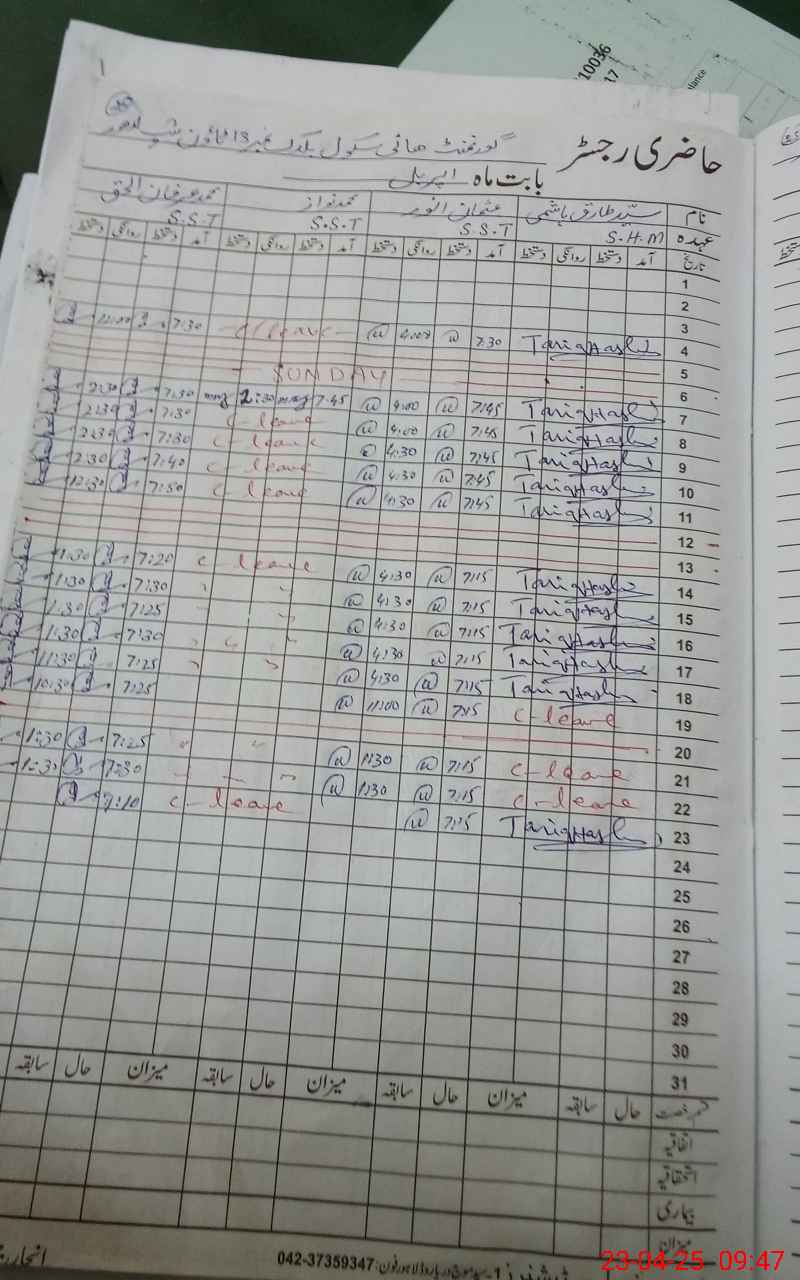 10036
17
lance
حاضری رجسٹر
گورنمنٹ ہائی سکول بلاک نمبر 13 ٹاؤن شپ لاہور
بابت ماہ اپریل
نام سید طارق ہاشمی عثمان انور محمد نواز محمد عرفان الحق
عہدہ S.H.M S.S.T S.S.T S.S.T
تاریخ آمد دستخط روانگی دستخط آمد دستخط روانگی دستخط آمد دستخط روانگی دستخط آمد دستخط روانگی دستخط
1
2
3
4 TariqHashmi 7:30 4:00 C-leave 7:30 12:00
5
6 SUNDAY
7 TariqHashmi 7:45 4:00 7:45 2:30 7:30 2:30
8 TariqHashmi 7:45 4:00 C-leave 7:30 2:30
9 TariqHashmi 7:45 4:30 C-leave 7:30 2:30
10 TariqHashmi 7:45 4:30 C-leave 7:40 2:30
11 TariqHashmi 7:45 4:30 C-leave 7:50 12:30
12
13
14 TariqHashmi 7:15 4:30 C-leave 7:20 1:30
15 TariqHashmi 7:15 4:30 " " 7:30 1:30
16 TariqHashmi 7:15 4:30 " " 7:25 1:30
17 TariqHashmi 7:15 4:30 " " " 7:30 1:30
18 TariqHashmi 7:15 4:30 " " 7:25 11:30
19 C-leave 7:15 11:00 7:25 10:30
20
21 C-leave 7:15 1:30 " " 7:25 1:30
22 C-leave 7:15 1:30 " " " 7:30 1:30
23 TariqHashmi 7:15 C-leave 7:10
24
25
26
27
28
29
30
31
قسم رخصت حال سابقہ میزان حال سابقہ میزان حال سابقہ میزان حال سابقہ
اتفاقیہ
استحقاقیہ
بیماری
میزان
042-37359347
23-04-25 09:47